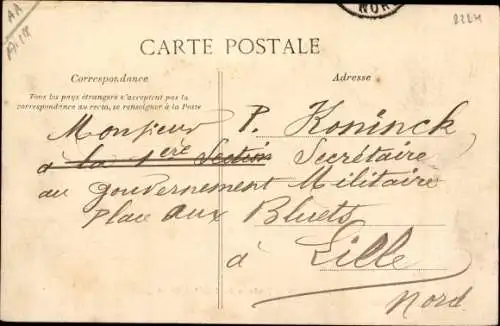 AA
NOR
2224
CARTE POSTALE
Correspondance
Adresse
Tous les pays étrangers n'acceptent pas la
correspondance au recto, se renseigner à la Poste
Monsieur P. Koninck
a la 1ere Section Secrétaire
au gouvernement Militaire
Place aux Bluets
à Lille
Nord